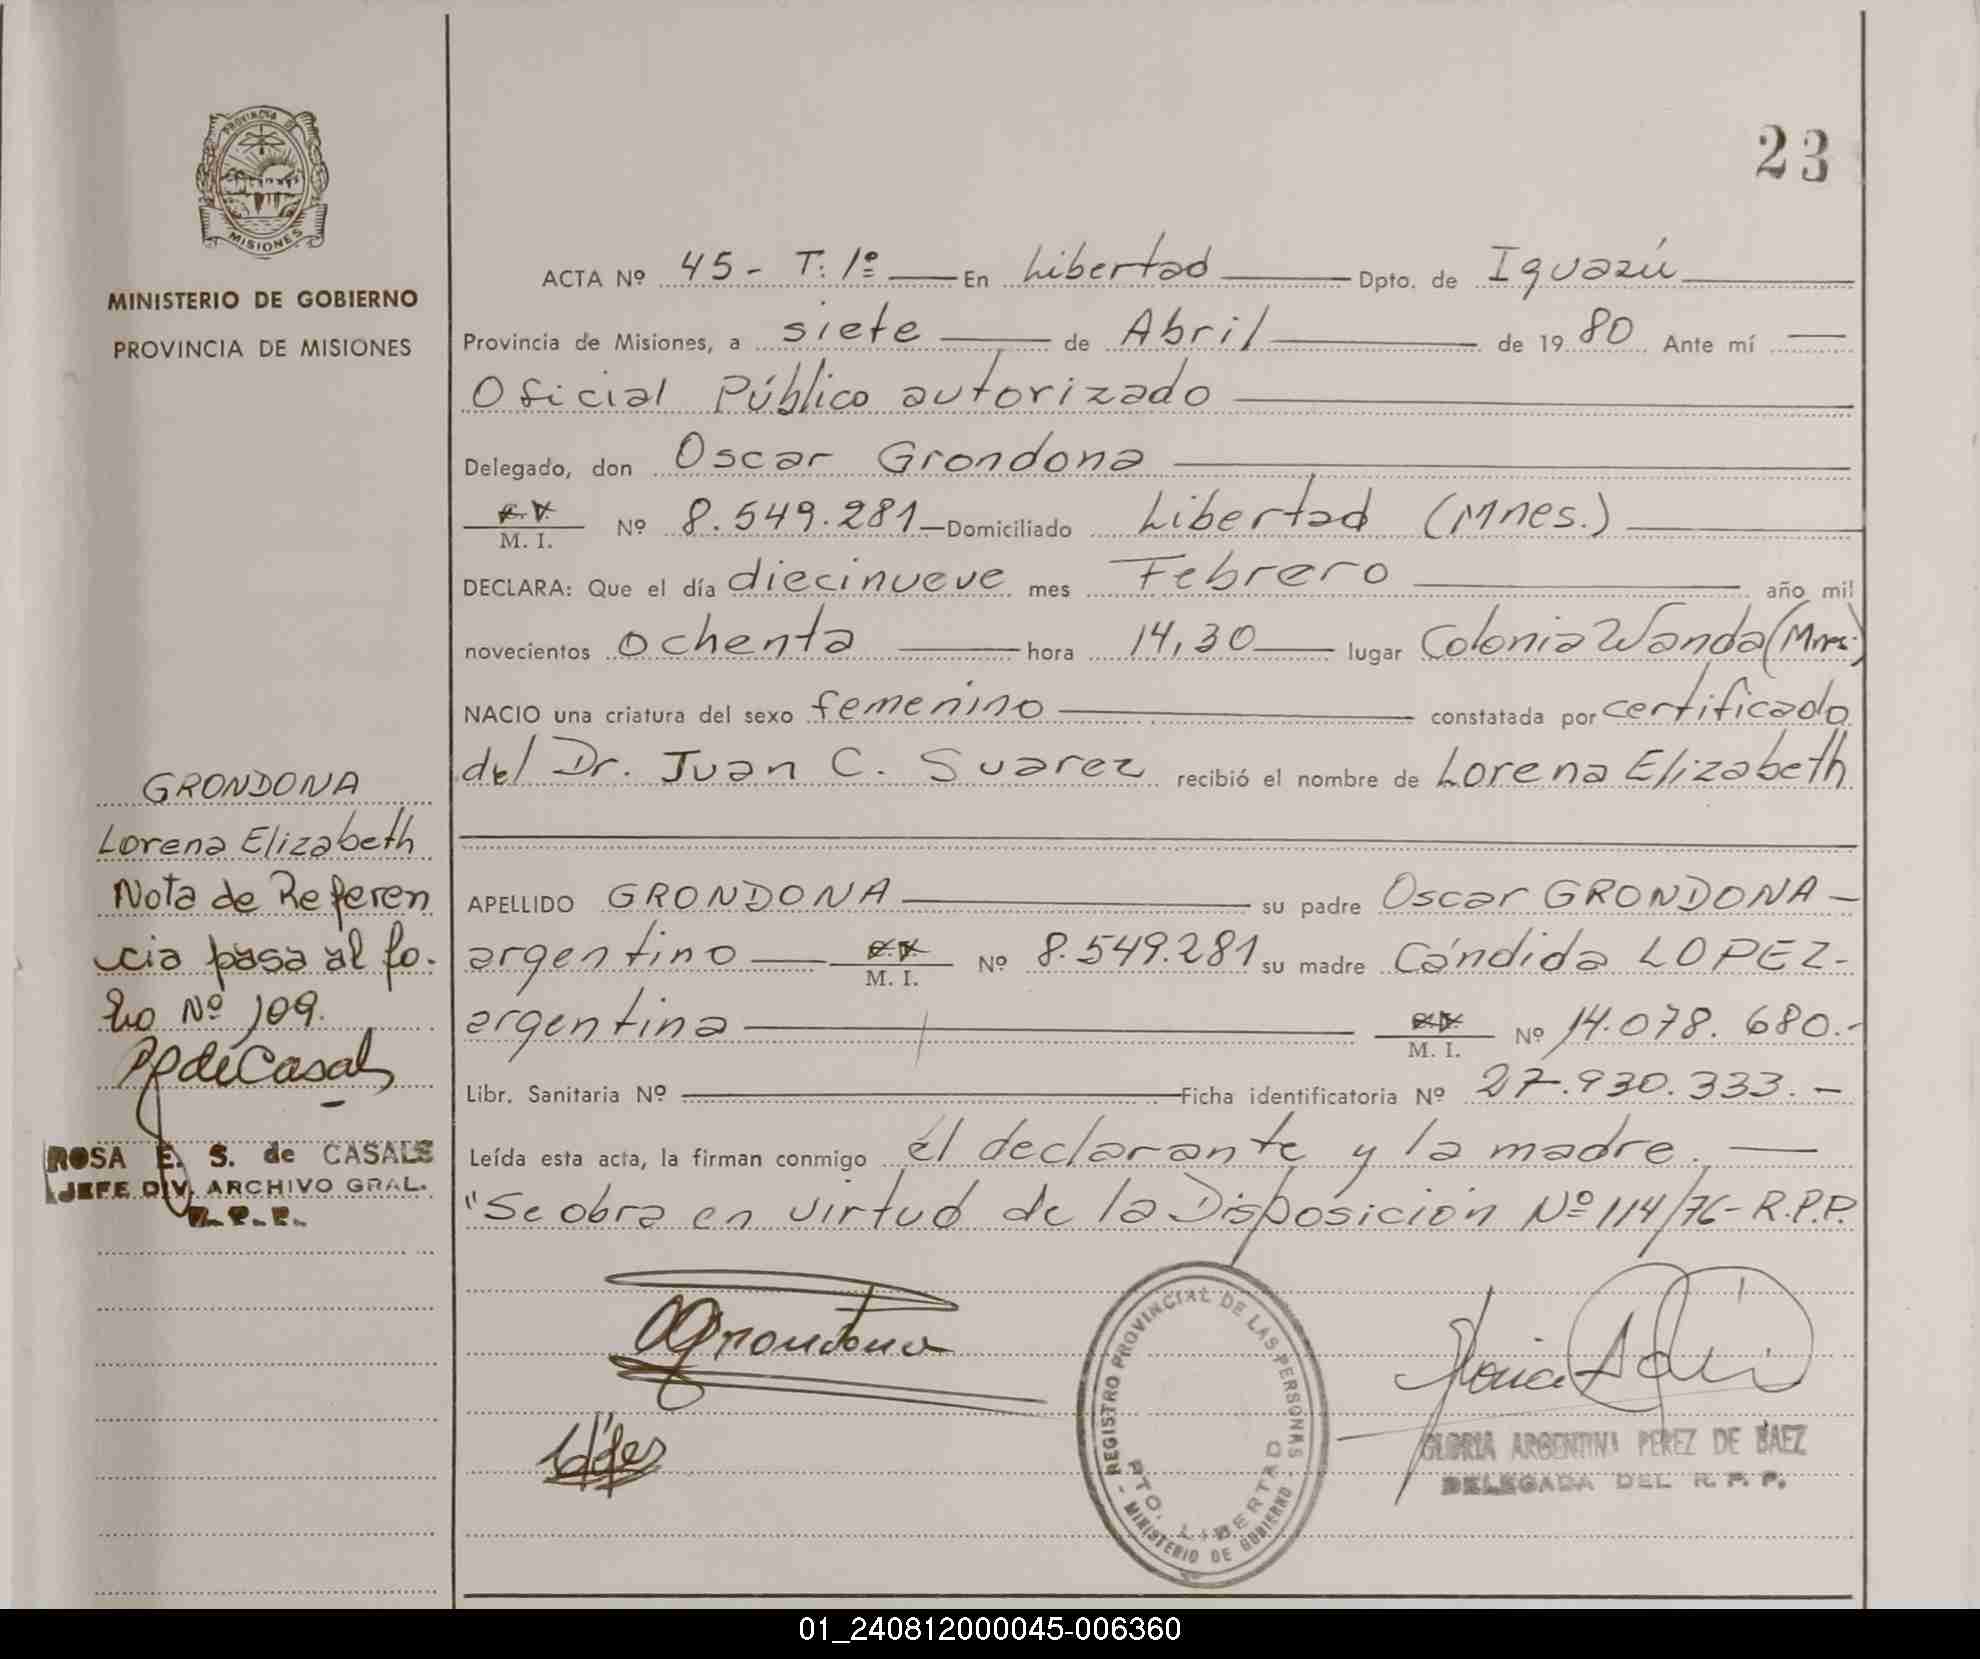 PROVINCIA DE
MISIONES
MINISTERIO DE GOBIERNO
PROVINCIA DE MISIONES
23
ACTA Nº 45 - T: 1º En Libertad Dpto. de Iguazú
Provincia de Misiones, a siete de Abril de 1980 Ante mí
Oficial Público autorizado
Delegado, don Oscar Grondona
M. I. Nº 8.549.281 Domiciliado Libertad (Mnes.)
DECLARA: Que el día diecinueve mes Febrero año mil
novecientos ochenta hora 14,30 lugar Colonia Wanda (Mnes.)
NACIO una criatura del sexo femenino constatada por certificado
del Dr. Juan C. Suarez recibió el nombre de Lorena Elizabeth
APELLIDO GRONDONA su padre Oscar GRONDONA -
argentino M. I. Nº 8.549.281 su madre Cándida LOPEZ -
argentina M. I. Nº 14.078.680.-
Libr. Sanitaria Nº Ficha identificatoria Nº 27.930.333.-
Leída esta acta, la firman conmigo el declarante y la madre.
"Se obra en virtud de la Disposición Nº 114/76 - R.P.P.
GRONDONA
Lorena Elizabeth
Nota de Referen
cia pasa al fo.
lio Nº 109.
ROSA E. S. de CASALS
JEFE DIV. ARCHIVO GRAL.
R. P. P.
OGrondona
REGISTRO PROVINCIAL DE LAS PERSONAS
PTO. LIBERTAD
- MINISTERIO DE GOBIERNO -
GLORIA ARGENTINA PEREZ DE BAEZ
DELEGADA DEL R. P. P.
01_240812000045-006360